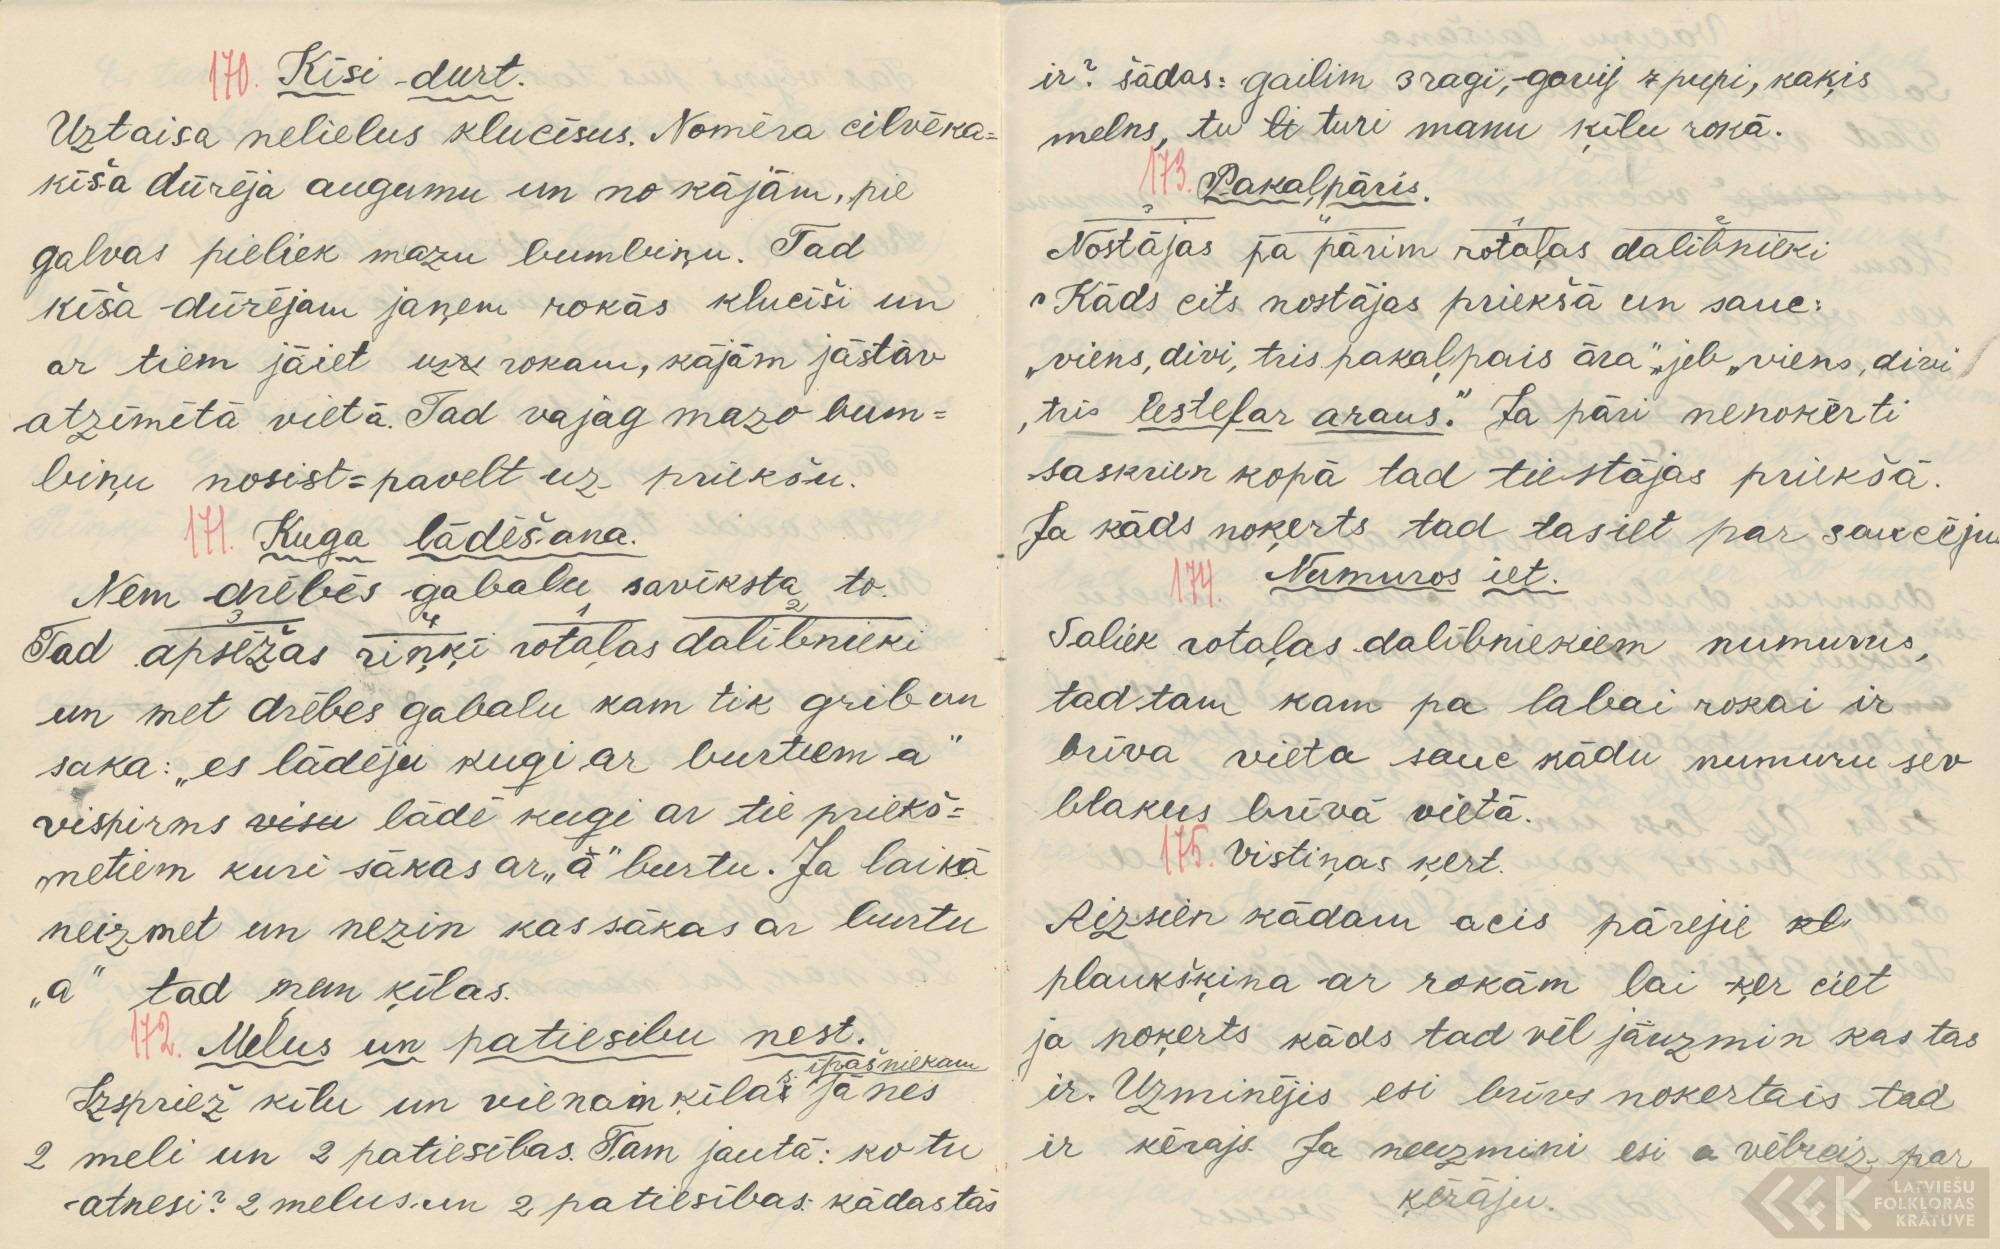 170. Kīsi durt.
Uztaisa nelielus klucīsus. Nomēra cilvēka=
kīša dūrēja augumu un no kājām, pie
galvas pieliek mazu bumbiņu. Tad
kīša dūrējam jaņem rokās klucīši un
ar tiem jāiet uz rokam, kājām jāstāv
atzīmētā vietā. Tad vajag mazo bum=
biņu nosist=pavelt uz priekšu.
171. Kuga lādēšana.
Nem drēbēs gabalu savīksta to.
3 4 1 2
Tad apsēžas riņķī rotaļas dalībnieki
un met drēbes gabalu kam tik grib un
saka: „es lādēju kugi ar burtiem a"
vispirms visu lādē kugi ar tie priekš=
metiem kuri sākas ar „ā" burtu. Ja laikā
neizmet un nezin kas sākas ar burtu
„a" tad ņem ķīlas.
172. Melus un patiesību nest.
īpašniekam
Izspriež kīlu un vienam ķīlas Jānes
2 meli un 2 patiesības. Tam jautā: ko tu
atnesi? 2 melus un 2 patiesības kādas tās
ir? šādas: gailim 3 ragi, govij 7 pupi, kaķis
melns, tu li turi manu ķīlu rokā.
173. Pakaļpāris.
3 4 1 2
Nostājas pa pārim rotaļas dalībnieki
Kāds cits nostājas priekšā un sauc:
„viens, divi, trīs pakaļpais āra", jeb „viens, divi
, trīs lestefar araus." Ja pāri nenokērti
saskrien kopā tad tie stājas priekšā.
Ja kāds noķerts tad tas iet par saucēju
174. Numuros iet.
Saliek rotaļas dalībniekiem numurus,
tad tam kam pa labai rokai ir
brīva vieta sauc kādu numuru sev
blakus brīvā vietā.
175. Vistiņas ķert.
Aizsien kādam acis pārejie kl
plaukšķina ar rokām lai ķer ciet
ja noķerts kāds tad vēl jāuzmin kas tas
ir. Uzminējis esi brīvs nokertais tad
ir kērajs. Ja neuzmini esi a vēlreiz par
ķērāju.
LATVIEŠU
FOLKLORAS
KRĀTUVE